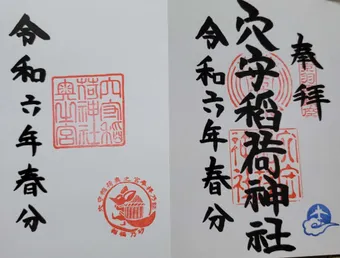 奉拝
穴守稲荷神社
令和六年春分
穴守稲荷神社奥之宮
令和六年春分